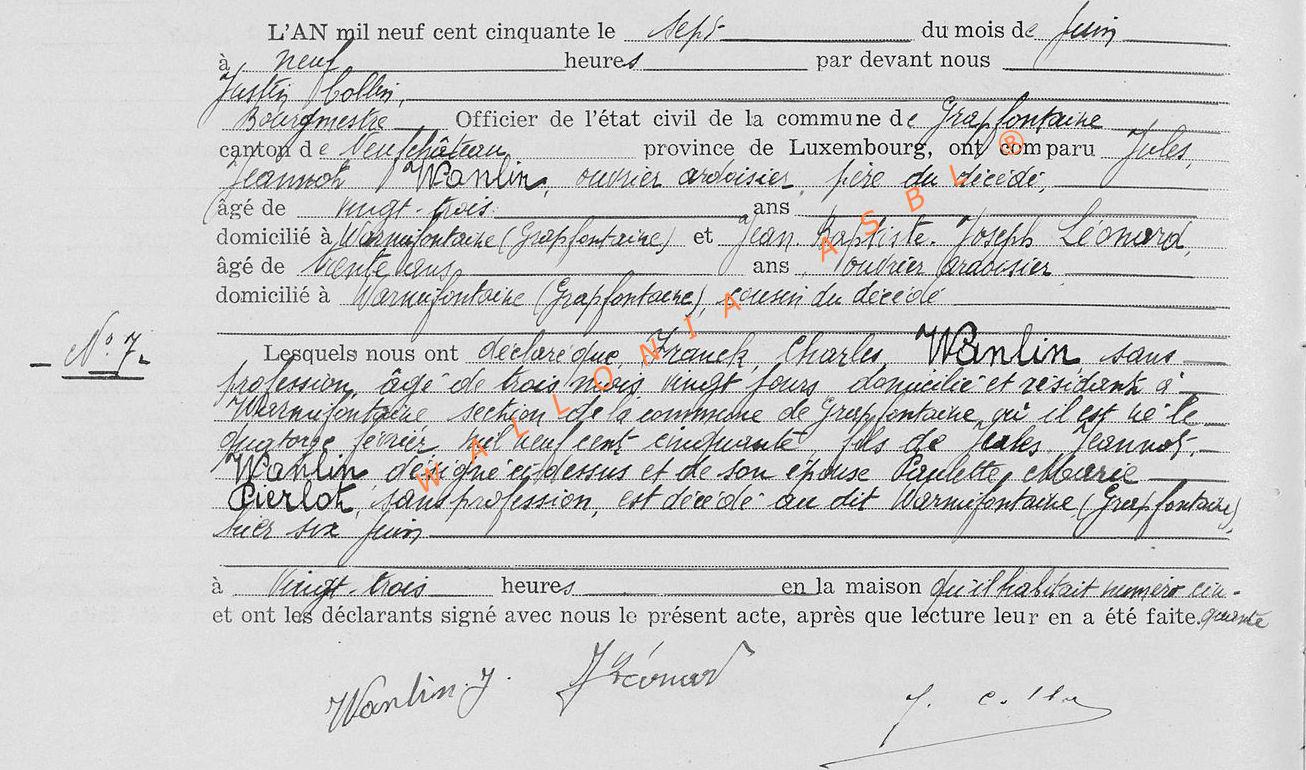 L'AN mil neuf cent cinquante le sept du mois de Juin
à neuf heures par devant nous
Justin Collin,
Bourgmestre Officier de l'état civil de la commune de Grapfontaine
canton de Neufchâteau province de Luxembourg, ont comparu Jules,
Jeannot Wanlin, ouvrier ardoisier, père du décédé,
âgé de vingt-trois ans
domicilié à Warmifontaine (Grapfontaine) et Jean Baptiste Joseph Léonard,
âgé de trente ans ans ouvrier ardoisier
domicilié à Warmifontaine (Grapfontaine), cousin du décédé
N° 7.
Lesquels nous ont déclaré que Franck, Charles, Wanlin sans
profession, âgé de trois mois vingt jours domicilié et résidant à
Warmifontaine section de la commune de Grapfontaine où il est né le
quatorze février mil neuf cent cinquante, fils de Jules Jeannot
Wanlin désigné ci-dessus et de son épouse Paulette Marie
Pierlot, sans profession, est décédé au dit Warmifontaine (Grapfontaine),
hier six juin
à vingt-trois heures en la maison qu'il habitait numéro cin-
et ont les déclarants signé avec nous le présent acte, après que lecture leur en a été faite. quante
Wanlin. J. J Léonard J. Collin
WALLONIA ASBL ®